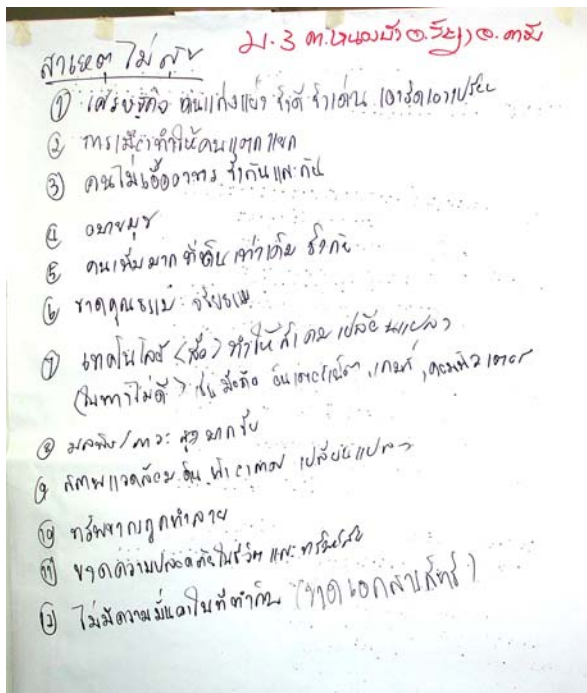 ม.3 ต.หนองบัว อ.วัฒ
สาเหตุ ไม่สุข
① เศรษฐกิจ คนแก่งแย่ง ชิงดี ชิงเด่น เอารัดเอาเปรียบ
② การเมืองทำให้คนแตกแยก
③ คนไม่เอื้ออาทร ซึ่งกันและกัน
④ อบายมุข
⑤ คนเพิ่มมาก ที่ดินเท่าเดิม
⑥ ขาดคุณธรรม จริยธรรม
⑦ เทคโนโลยี (สื่อ) ทำให้สังคม เปลี่ยนแปลง
(ในทางไม่ดี) เช่น มือถือ อินเตอร์เน็ต, เกมส์, คอมพิวเตอร์
⑧ มลพิษ/ภาวะ สูงมากขึ้น
⑨ สภาพแวดล้อม ดิน น้ำ อากาศ เปลี่ยนแปลง
⑩ ทรัพยากรถูกทำลาย
⑪ ขาดความปลอดภัยในชีวิต และทรัพย์สิน
⑫ ไม่มีความมั่นคงในที่ทำกิน (ขาดเอกสารสิทธิ์)